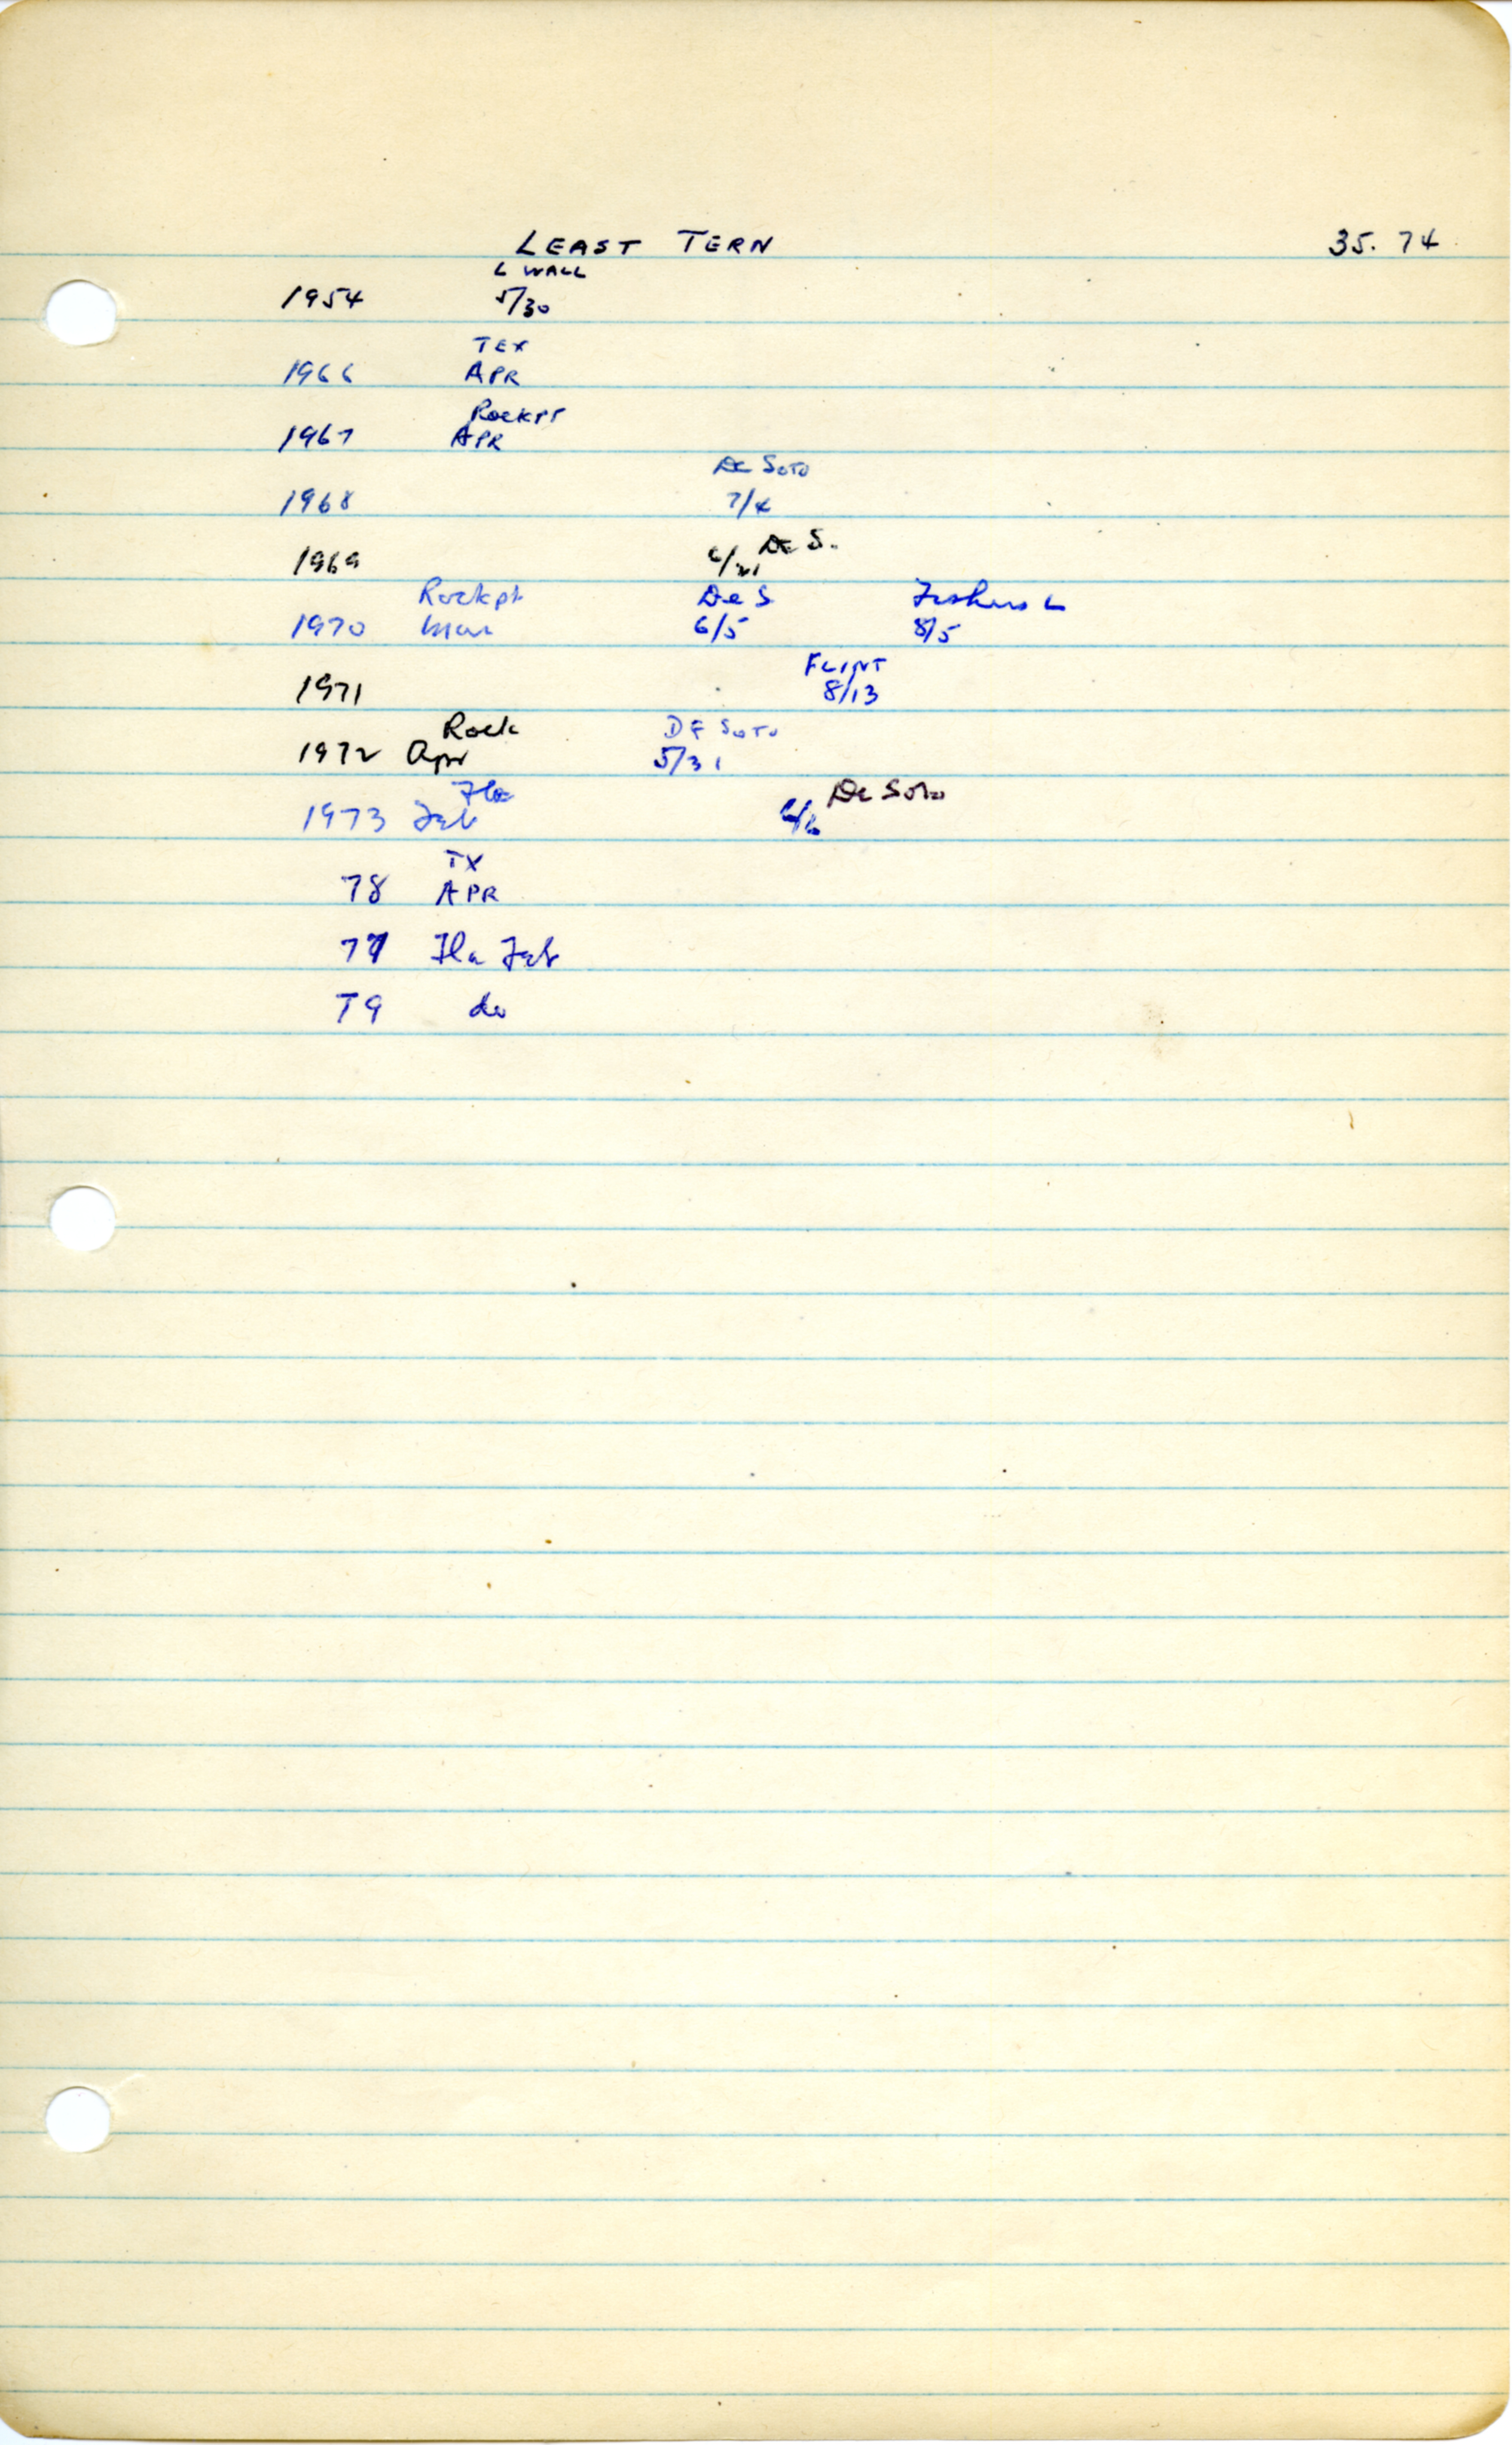 LEAST TERN 35.74
L WALL
1954 5/30
TEX
1966 APR
Rockpt
1967 APR
De Soto
1968 7/4
1969 6/21 De S.
Rockpt De S Fishers L
1970 Mar 6/5 8/5
FLINT
1971 8/13
Rock DE SOTO
1972 Apr 5/31
Fla De Soto
1973 Feb 6/6
TX
78 APR
77 Fla Feb
79 do